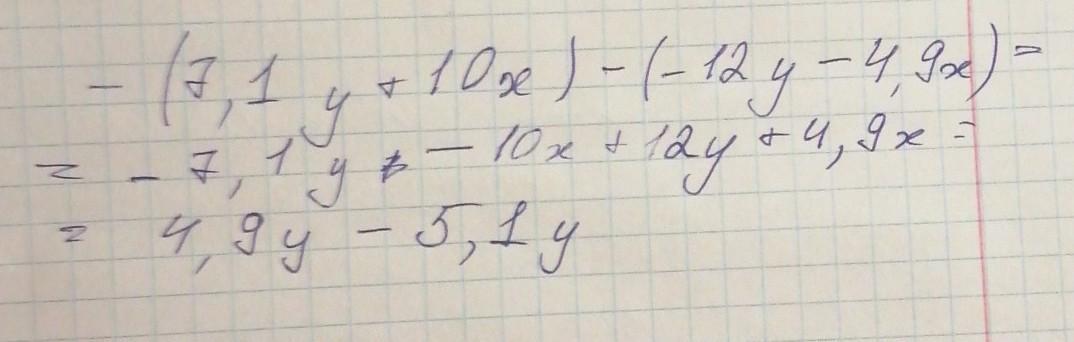 - (7,1 y + 10x) - (-12y - 4,9x) =
= - 7,1 y - 10x + 12y + 4,9x =
= 4,9y - 5,1y